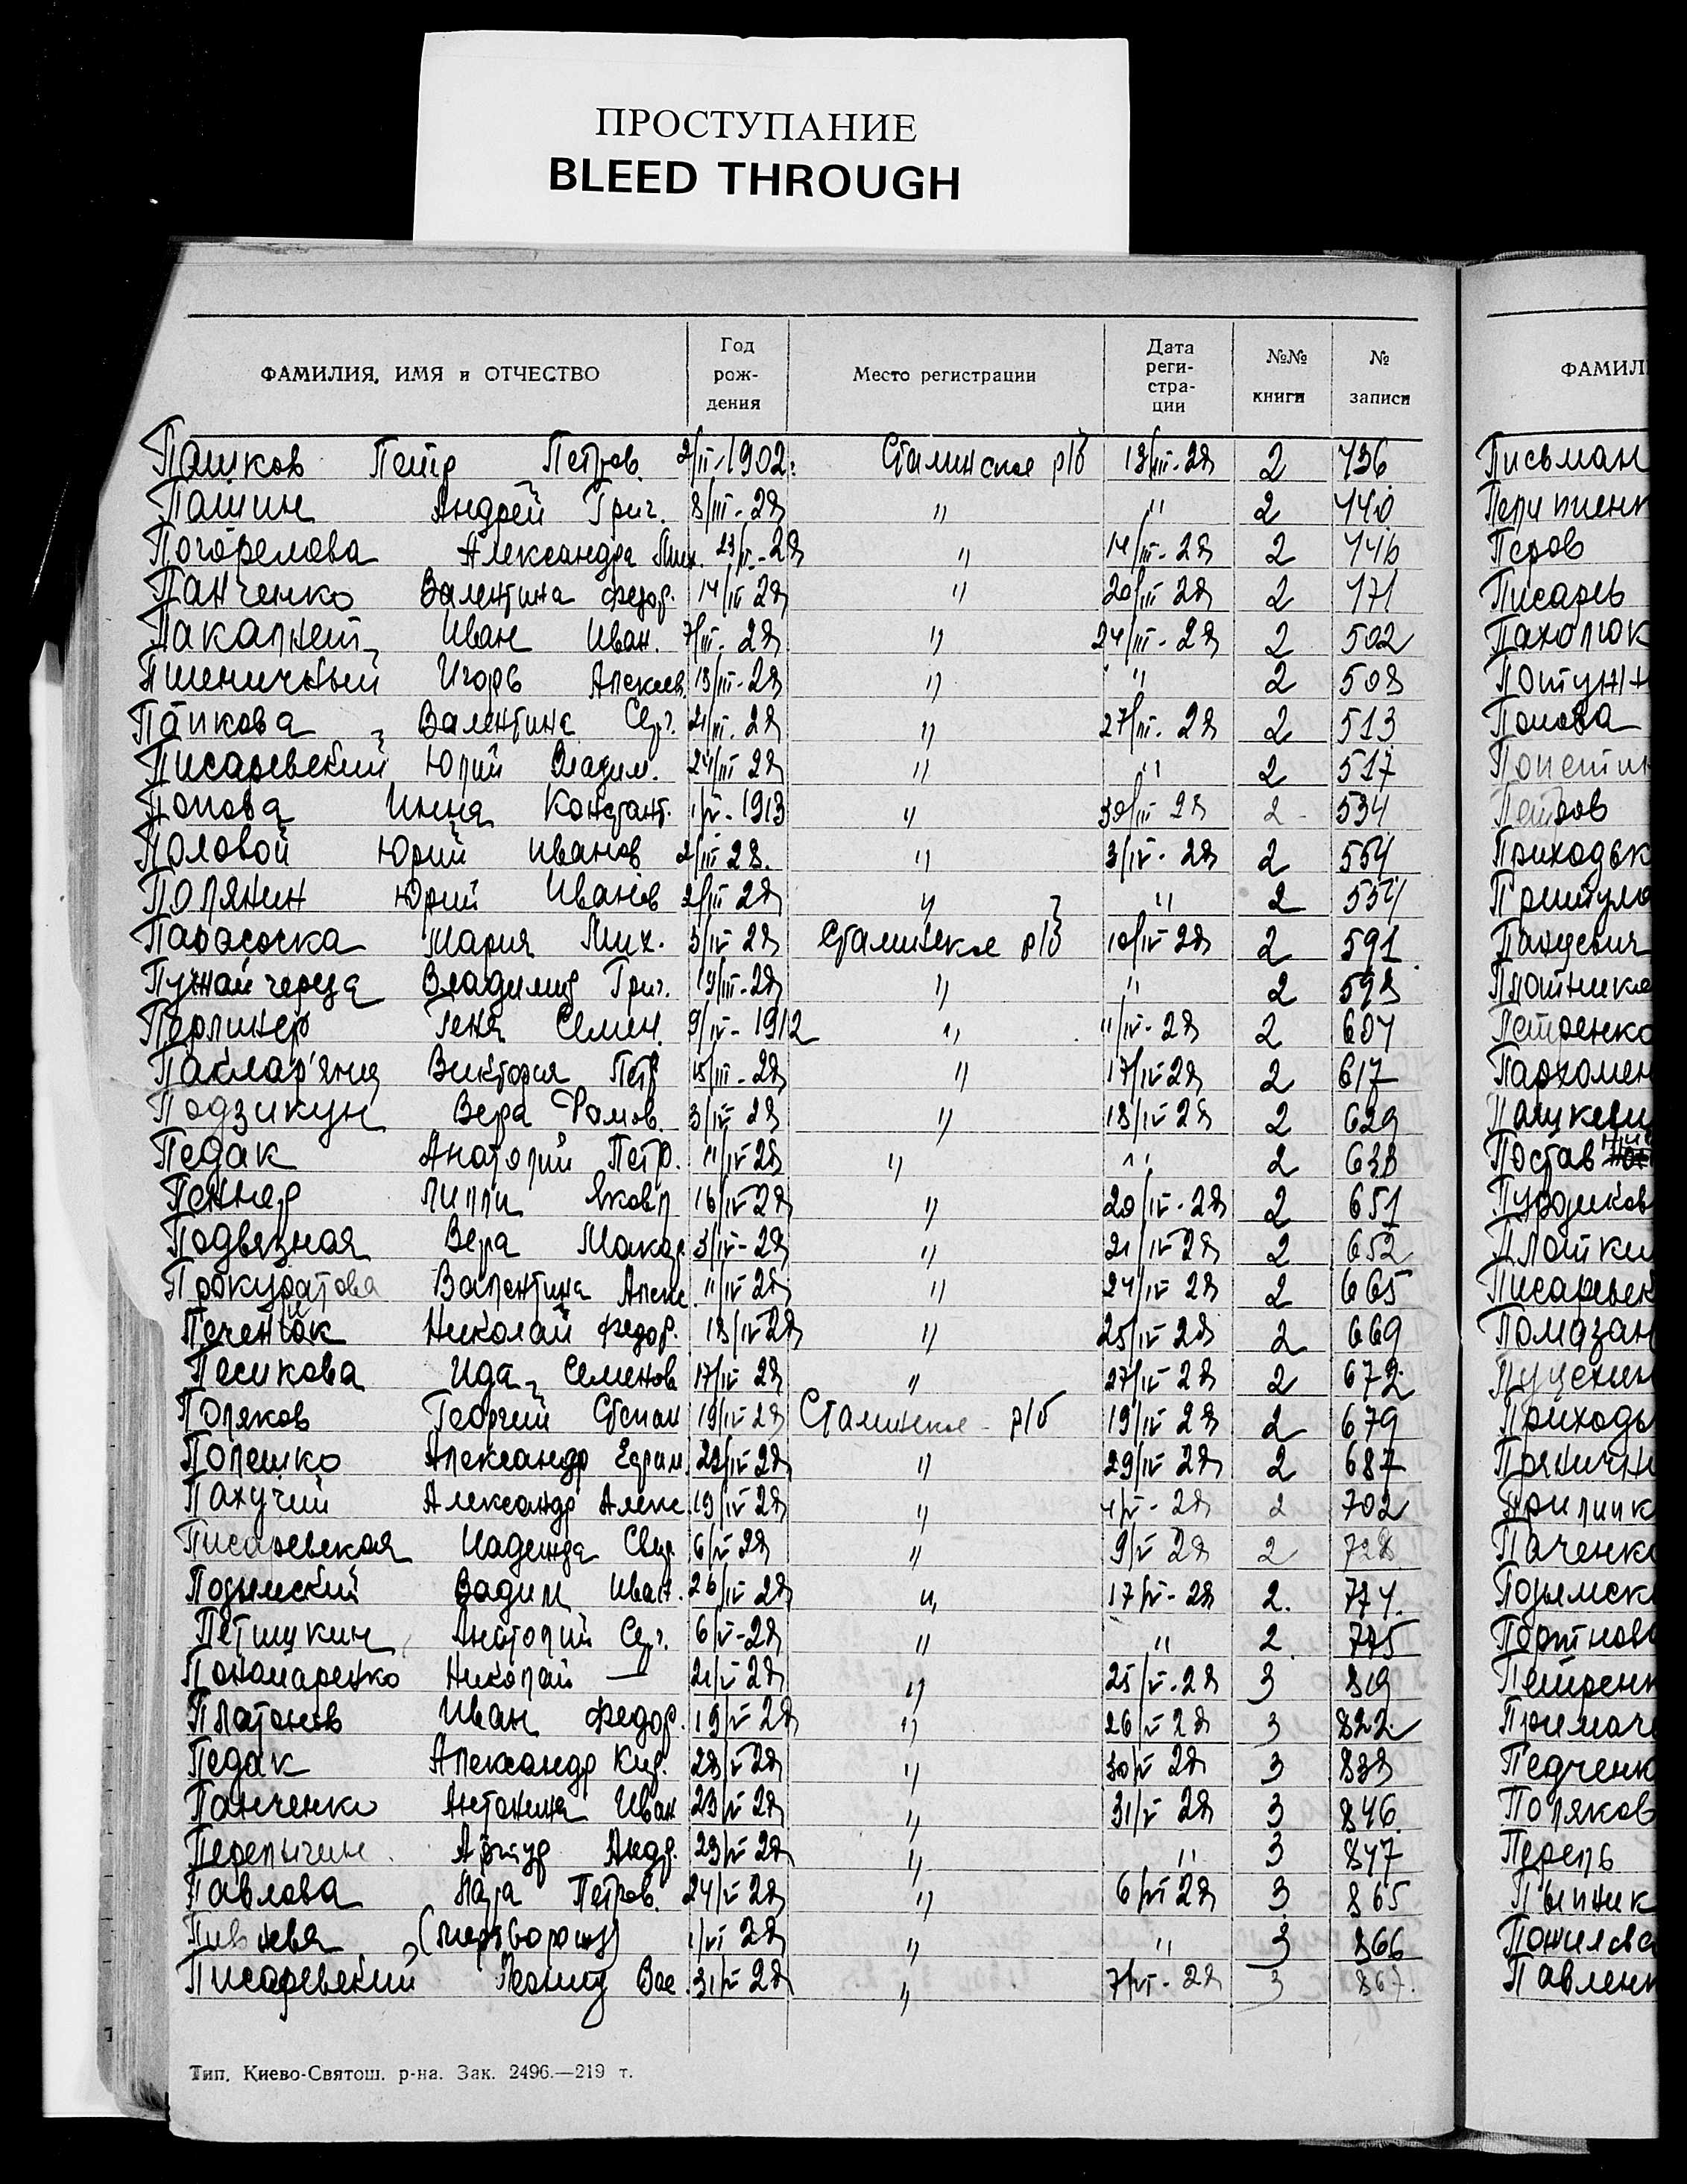 ПРОСТУПАНИЕ
BLEED THROUGH
ФАМИЛИЯ, ИМЯ и ОТЧЕСТВО Год рождения Место регистрации Дата регистрации №№ книги № записи ФАМИЛИ
Пашков Петр Петров. 2/II-1902. Сталинское р/б 13/III-28 2 436 Письман
Пашин Андрей Григ. 8/III-28 " " 2 440
Погорелова Александра Мих. 23/II-28 " 14/III-28 2 446 Перов
Панченко Валентина Федор. 14/III 28 " 20/III 28 2 471 Писарь
Пакалнет Иван Иван. 7/III-28 " 24/III-28 2 502 Пахолюк
Пшеничный Игорь Алексеев. 13/III-28 " " 2 508
Папкова Валентина Серг. 21/III-28 " 27/III-28 2 513 Попова
Писаревский Юлий Владим. 24/III 28 " " 2 517
Попова Инна Констант. 1/V-1913 " 30/III 28 2 534 Петров
Половой Юрий Иванов 2/III 28. " 3/IV-28 2 554 Приходьк
Полянин Юрий Иванов 2/III 28 " " 2 554 Притула
Парасочка Мария Мих. 3/IV 28 Сталинское р/б 10/IV 28 2 591
Пужайчереда Владимир Григ. 19/III-28 " " 2 598 Плотнико
Перлинер Геня Семен. 9/IV-1912 " 11/IV-28 2 604 Петренко
Паклар'яня Виктория Петр 15/III-28 " 17/IV 28 2 617 Пархомен
Подзикун Вера Ромов. 3/IV 28 " 18/IV 28 2 629
Педак Анатолий Петр. 11/IV 28 " " 2 638 Постав
Пеннер Лилли Яковл 16/IV 28 " 20/IV-28 2 651
Подвязная Вера Макар. 3/IV-28 " 21/IV 28 2 652 Плоткин
Прокуратова Валентина Алекс. 11/IV 28 " 24/IV 28 2 665 Писаревск
Печенюк Николай Федор. 18/IV 28 " 25/IV 28 2 669 Помазан
Песикова Ида Семенов 17/IV 28 " 27/IV 28 2 672
Поляков Георгий Степан 19/IV 28 Сталинское р/б 19/IV 28 2 679 Приходь
Полешко Александр Ефрам. 22/IV 28 " 29/IV 28 2 687
Пахучий Александр Алекс. 19/IV 28 " 4/V-28 2 702 Прилипк
Писаревская Надежда Сер. 6/V 28 " 9/V 28 2 728 Паченко
Подымский Вадим Иван. 26/IV 28 " 17/V-28 2. 774. Подымск
Петушкин Анатолий Серг. 6/V-28 " " 2 775 Портново
Пономаренко Николай — 21/V 28 " 25/V-28 3 819 Петренк
Платонов Иван Федор. 19/V 28 " 26/V 28 3 822
Педак Александр Кир. 28/V 28 " 30/V 28 3 838 Педченко
Панченко Антонина Иван 23/V 28 " 31/V 28 3 846. Поляков
Артур Андр. 29/V 28 " " 3 847
Павлова Лара Петров. 24/V 28 " 6/VI 28 3 865
Пивнева (мертворожд) 1/VI 28 " " 3 866
Писаревский Леонид Вас. 31/V 28 " 7/VI-28 3 867. Павленк
Тип. Киево-Святош. р-на. Зак. 2496.—219 т.